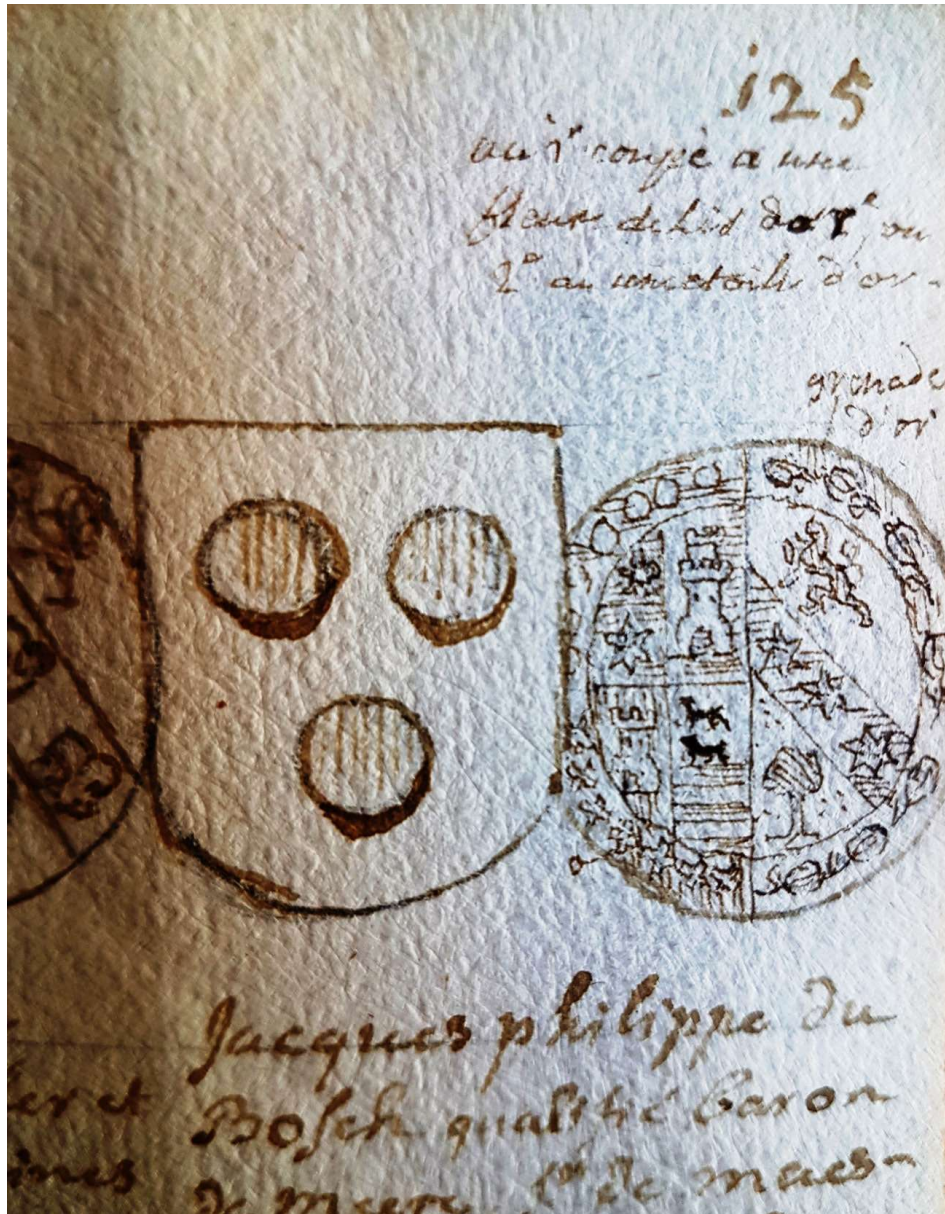 125
au 1r coupé a une
fleur de Lis d'or, ou
2e au une etoile d'or
grenade
d'or
Jacques philippe du
er et Bosch qualifié baron
ines de meere de maes-